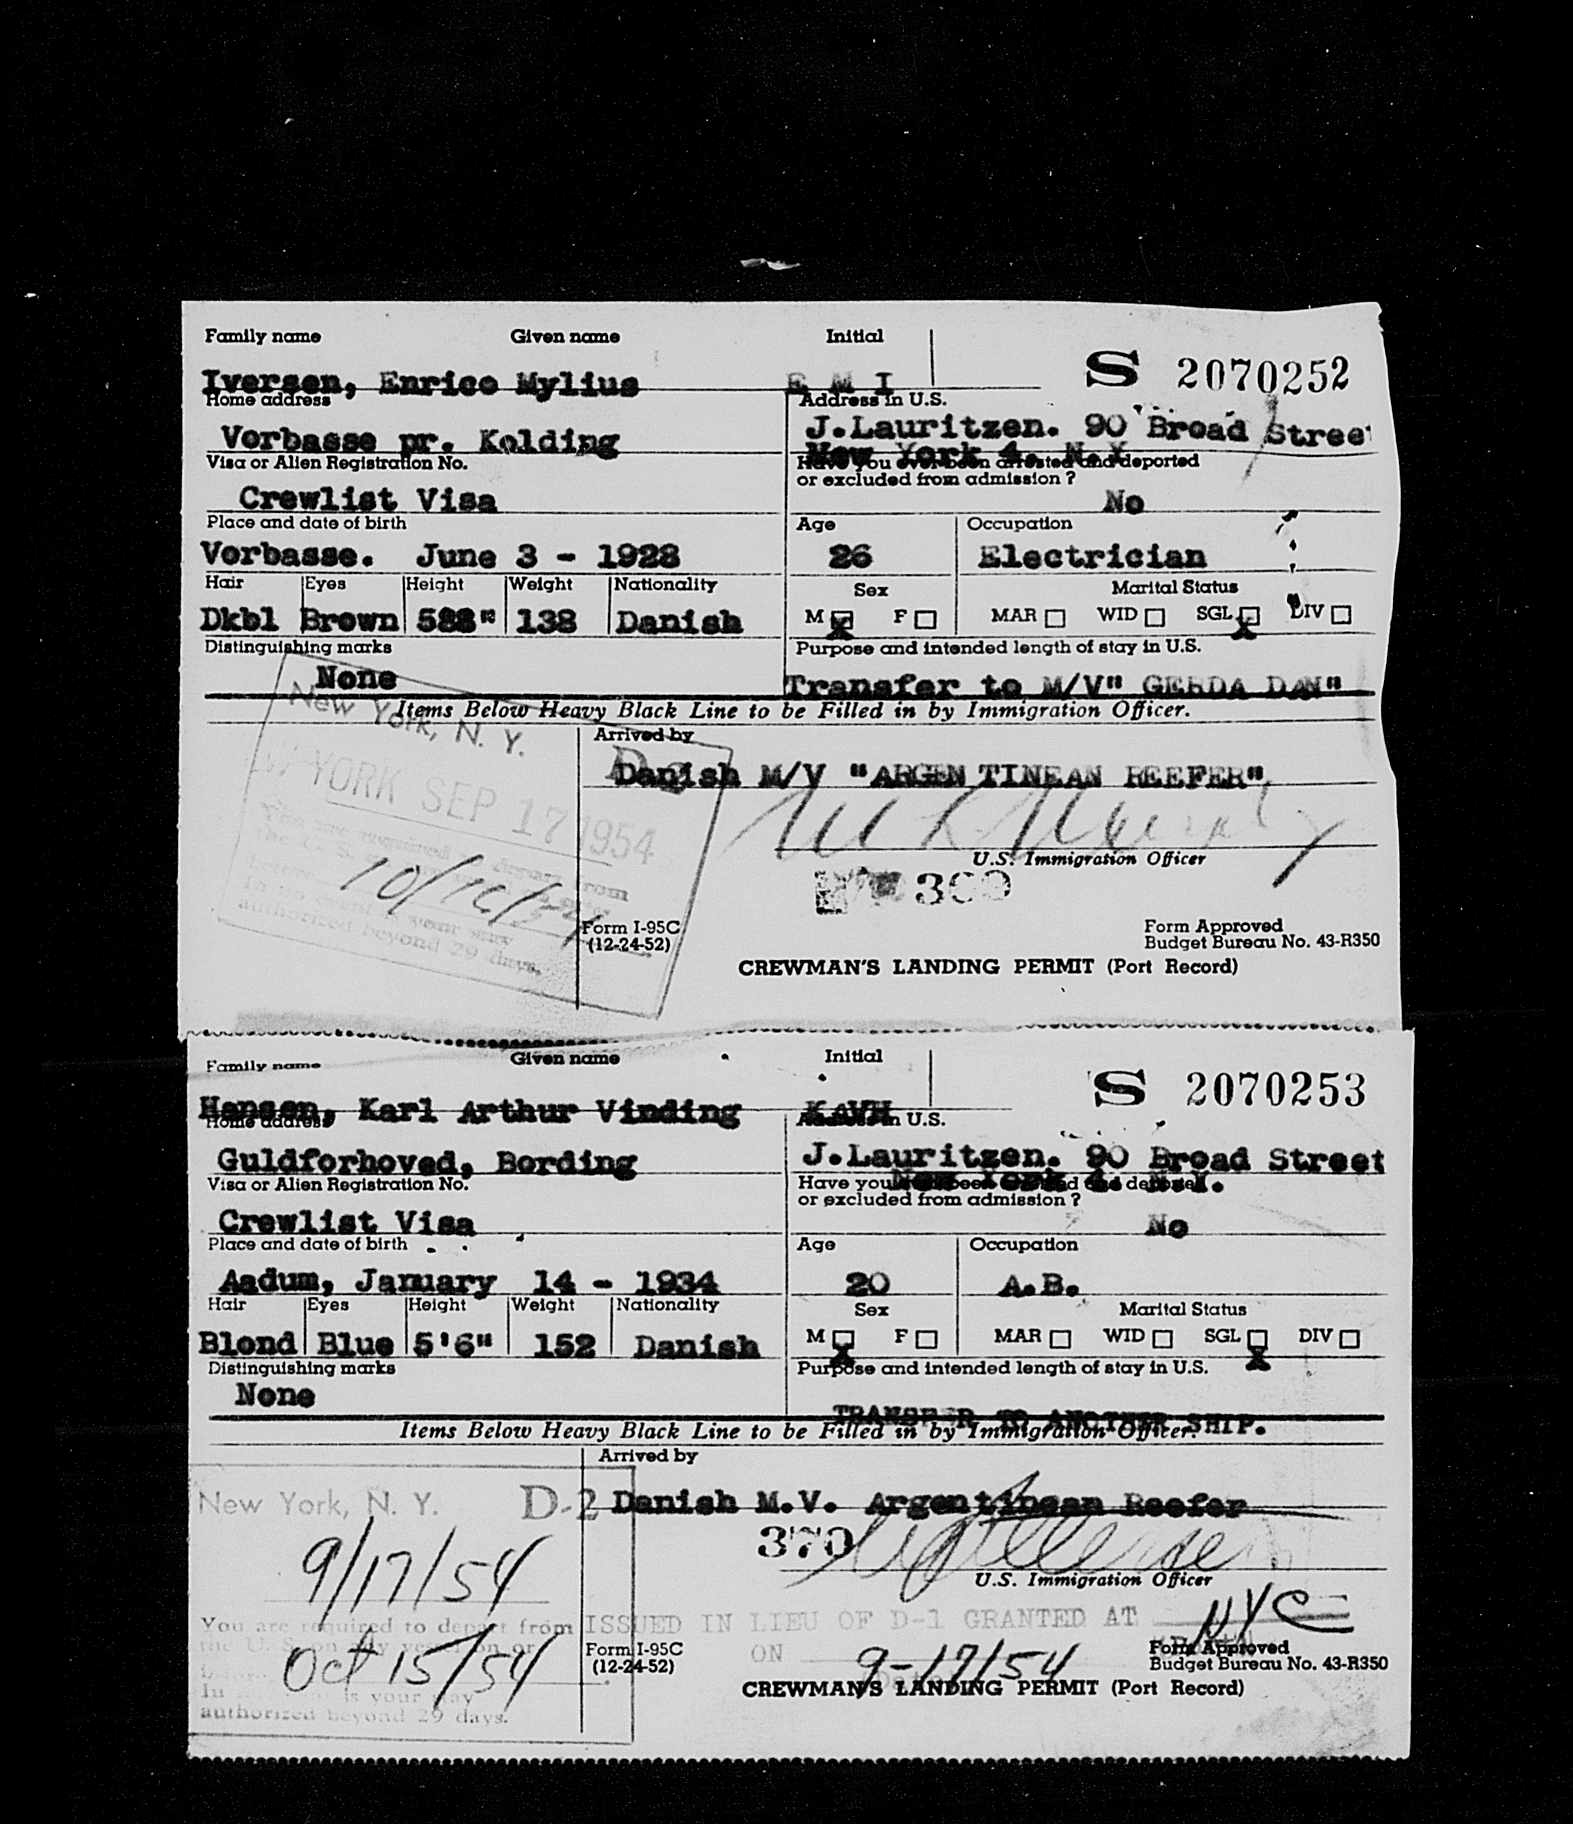 Family name Given name Initial
S 2070252
Iversen, Enrico Mylius E M I
Home address Address in U.S.
Vorbasse pr. Kolding J.Lauritzen. 90 Broad Street
New York 4. N.Y.
Visa or Alien Registration No. Have you ever been arrested and deported
or excluded from admission?
Crewlist Visa No
Place and date of birth Age Occupation
Vorbasse. June 3 - 1928 26 Electrician
Hair Eyes Height Weight Nationality Sex Marital Status
Dkbl Brown 138 Danish M X F MAR WID SGL X DIV
Distinguishing marks Purpose and intended length of stay in U.S.
None Transfer to M/V" GERDA DAN"
Items Below Heavy Black Line to be Filled in by Immigration Officer.
New York, N. Y. Arrived by
Danish M/V "ARGENTINEAN REEFER"
YORK SEP 17 1954
U.S. Immigration Officer
authorized beyond 29 days.
Form I-95C Form Approved
(12-24-52) Budget Bureau No. 43-R350
CREWMAN'S LANDING PERMIT (Port Record)
Family name Given name Initial
S 2070253
Hansen, Karl Arthur Vinding KAVH
Home address Address in U.S.
Guldforhoved, Bording J.Lauritzen. 90 Broad Street
New York 4. N.Y.
Visa or Alien Registration No. Have you ever been arrested and deported
or excluded from admission?
Crewlist Visa No
Place and date of birth Age Occupation
Aadum, January 14 - 1934 20 A.B.
Hair Eyes Height Weight Nationality Sex Marital Status
Blond Blue 5'6" 152 Danish M X F MAR WID SGL X DIV
Distinguishing marks Purpose and intended length of stay in U.S.
None
TRANSFER TO ANOTHER SHIP.
Items Below Heavy Black Line to be Filled in by Immigration Officer.
Arrived by
New York, N. Y. D-2 Danish M.V. Argentinean Reefer
370
9/17/54
U.S. Immigration Officer
You are required to depart from ISSUED IN LIEU OF D-1 GRANTED AT NYC
Oct 15/54 ON 9-17/54
authorized beyond 29 days.
Form I-95C Form Approved
(12-24-52) Budget Bureau No. 43-R350
CREWMAN'S LANDING PERMIT (Port Record)